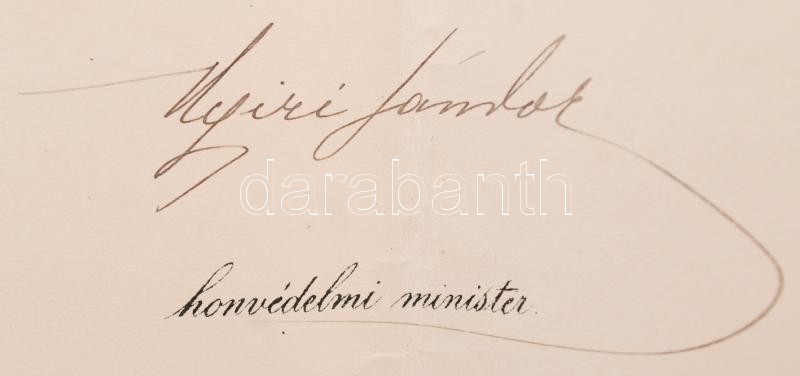 Nyiri Sándor
darabanth
honvédelmi minister.